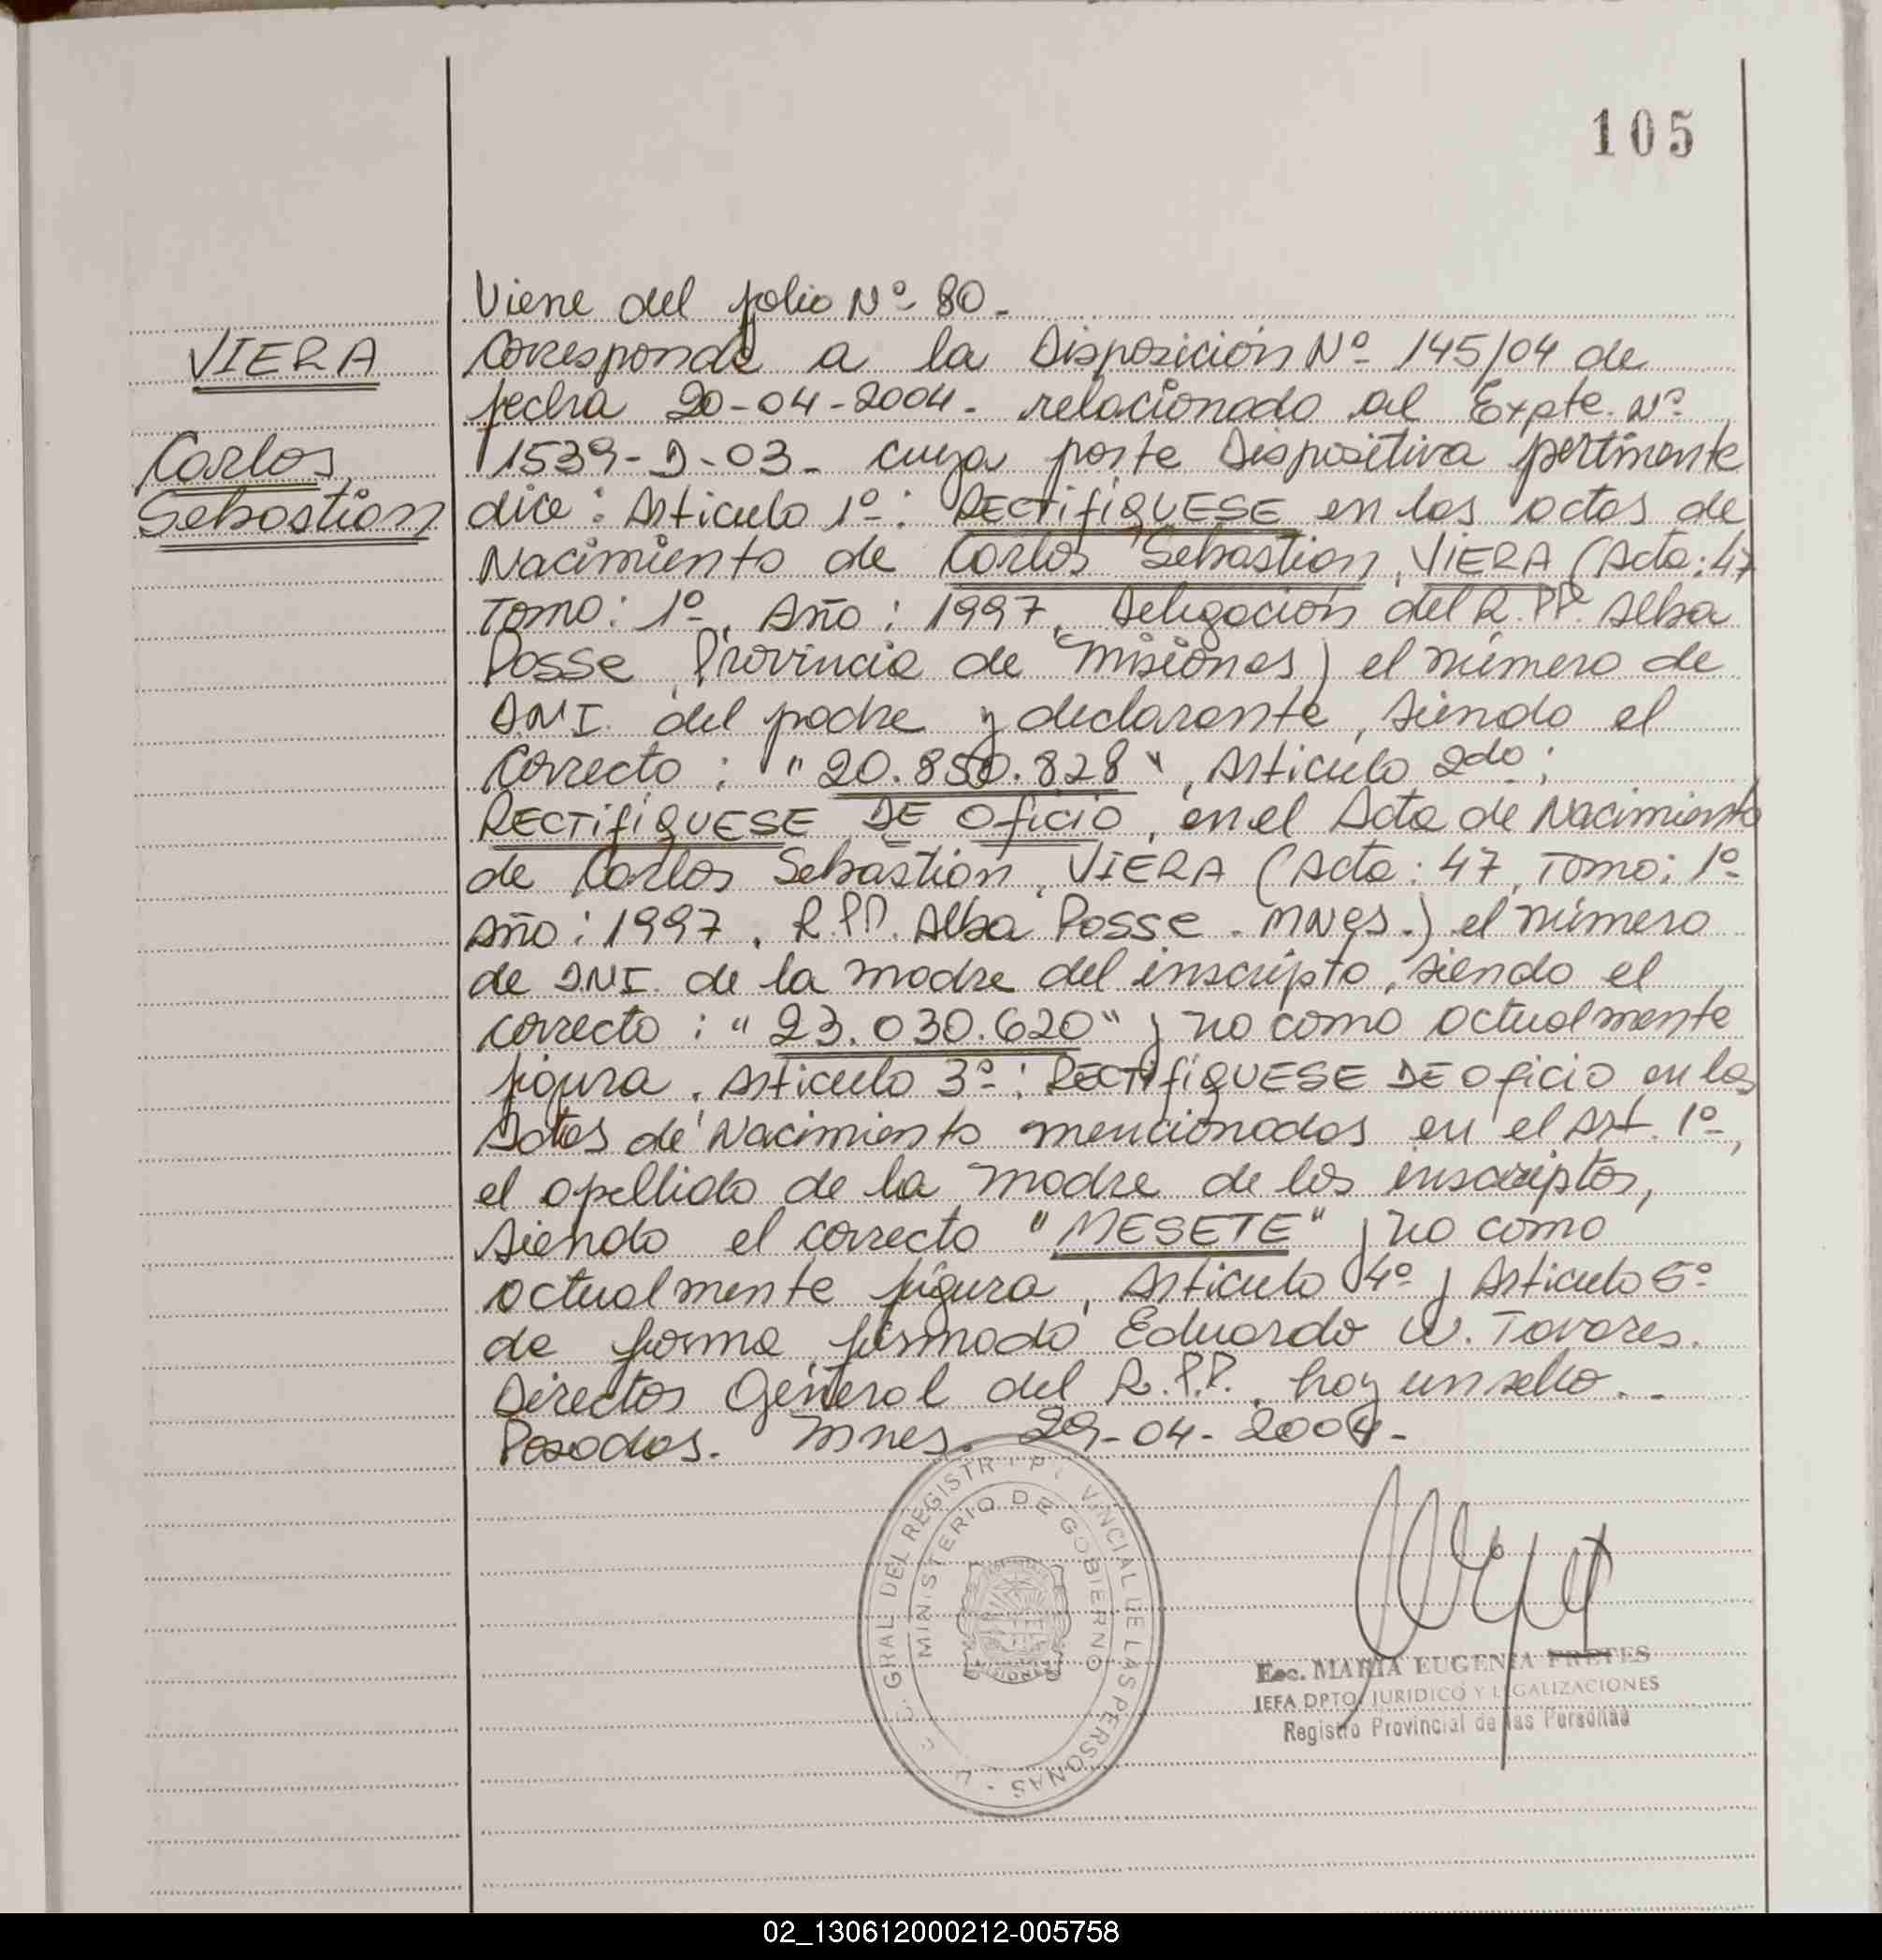 105
Viene del folio Nº 80.
VIERA
Corresponde a la Disposición Nº 145/04 de
fecha 20-04-2004. relacionado al Expte. Nº
Carlos
1539-D-03. cuya parte Dispositiva pertinente
Sebastian
dice: Articulo 1º: RECTIFIQUESE en las actas de
Nacimiento de Carlos Sebastian, VIERA (Acta: 47
Tomo: 1º, Año: 1997, Delegación del R.PP. Alba
Posse, Provincia de Misiones) el número de
D.N.I. del padre y declarante, siendo el
correcto: "20.850.828", Articulo 2do:
RECTIFIQUESE DE OFICIO, en el Acta de Nacimiento
de Carlos Sebastian, VIERA (Acta: 47, Tomo: 1º
Año: 1997, R.PP. Alba Posse - MNES.) el número
de D.N.I. de la madre del inscripto, siendo el
correcto: "23.030.620" y no como actualmente
figura. Articulo 3º: RECTIFIQUESE DE OFICIO en las
Actas de Nacimiento mencionados en el Art. 1º,
el apellido de la madre de los inscriptos,
siendo el correcto "MESETE" y no como
actualmente figura, Articulo 4º y Articulo 5º
de forma, firmado Eduardo W. Tavares.
Director General del R.P.P., hay un sello.
Posadas. Mnes. 29-04-2004-
GRAL DEL REGISTR PR VINCIAL DE LAS PERSONAS
MINISTERIO DE GOBIERNO
MISIONES
Esc. MARIA EUGENIA FRETES
JEFA DPTO. JURIDICO Y LEGALIZACIONES
Registro Provincial de las Personas
02_130612000212-005758